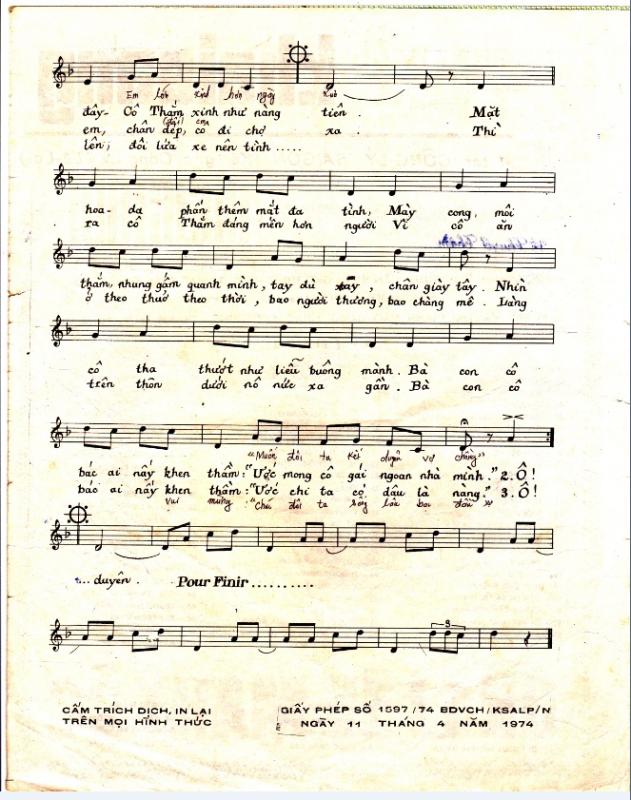 đây- Cô Thắm xinh như nàng tiên. Mặt
em, chân dép, cô đi chợ xa. Thì
lên; đôi lứa xe nên tình.....
hoa- da phấn thêm mắt đa tình, Mày cong, môi
ra cô Thắm đáng mến hơn người Vì cô ăn
thắm, nhung gấm quanh mình, tay dù, chân giày tây. Nhìn
ở theo thuở theo thời, bao người thương, bao chàng mê. Làng
cô tha thướt như liễu buông mành. Bà con cô
trên thôn dưới nô nức xa gần. Bà con cô
"Muốn đôi ta kết duyên vợ chồng"
bác ai nấy khen thầm: "Ước mong cô gái ngoan nhà mình." 2.Ô!
bác ai nấy khen thầm: "Ước chi ta có dâu là nàng." 3.Ô!
vui mừng: "Chúc đôi ta
... duyên. Pour Finir..........
3
CẤM TRÍCH DỊCH, IN LẠI
TRÊN MỌI HÌNH THỨC
GIẤY PHÉP SỐ 1597/74 BDVCH/KSALP/N
NGÀY 11 THÁNG 4 NĂM 1974